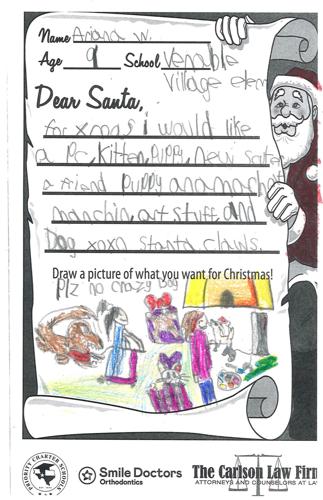 Name Ariana W.
Age 9 School Venable
Village elem
Dear Santa,
for xmas i would like
a Pc, Kitten, Puppy, new
a friend Puppy
manchin, art stuff, and
Dog xoxo Stanta claws.
Draw a picture of what you want for Christmas!
Plz no crazy Dog
PRIORITY CHARTER SCHOOLS
Smile Doctors
Orthodontics
The Carlson Law Firm
ATTORNEYS AND COUNSELORS AT LA